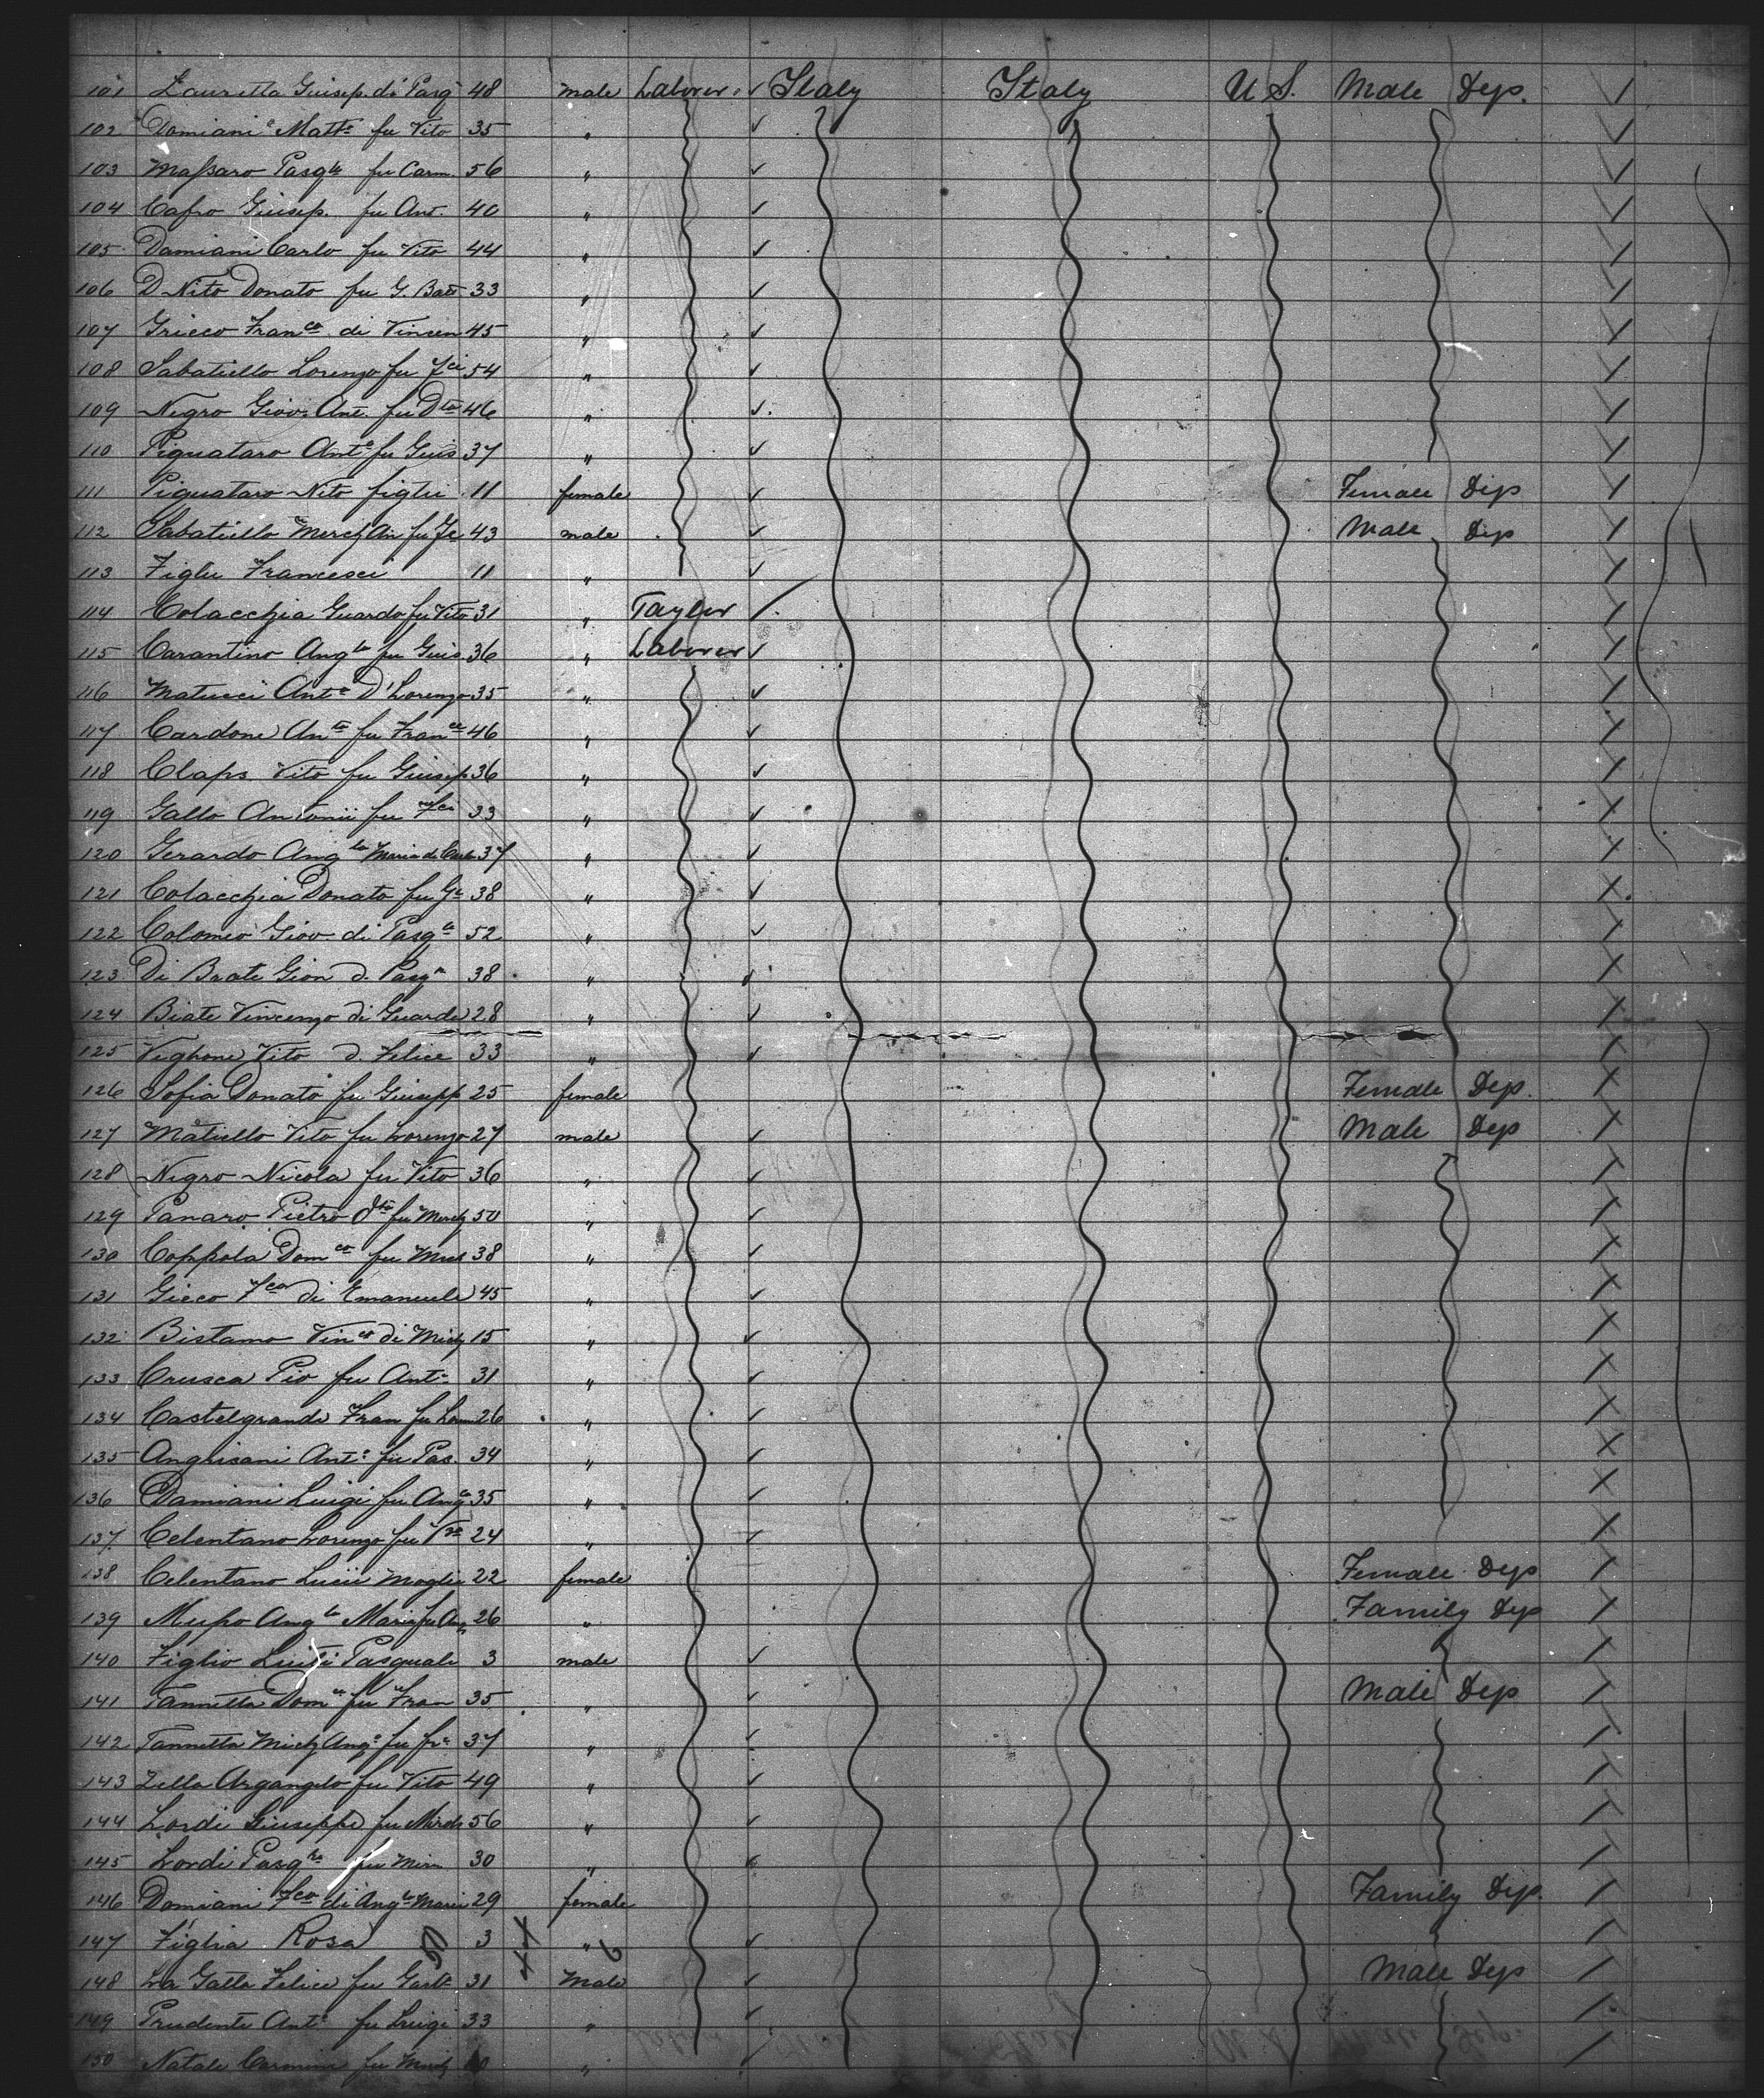 101 Lauretta Giusep. di Pasq 48 male Laborer Italy Italy U S. Male Dep.
102 Domiani Matt° fu Vito 35 "
103 Massaro Pasqle fu Carm. 56 "
104 Cafro Giusep. fu Ant. 40 "
105 Damiani Carlo fu Vito 44 "
106 D Nito Donato fu G. Batt 33 "
107 Gricco Franco di Vincen 45 "
108 Sabatiello Lorenzo fu 54 "
109 Negro Giov. Ant. fu Dto 46 "
110 Piguataro Ant° fu Guis 37 "
111 Piguataro Nito figlii 11 female Female Dep
112 Sabatiello fu 43 male Male Dep
113 Figlu Francesci 11 "
114 Colacchia Guardo fu Vito 31 " Taylor
115 Carantino Angto fu Guis 36 " Laborer
116 Matucci Ant° D'Lorenzo 35 "
117 Cardone Anto fu Franco 46 "
118 Claps Vito fu Guisep 36 "
119 Gallo Antonii fu Fco 33 "
120 Gerardo Angla Maria di 37 "
121 Colacchia Donato fu 38 "
122 Colomeo Giov. di Pasqle 52 "
123 Di Brate Gion d. Pasq 38 "
124 Biate Vincenzo di Guardo 28 "
125 Vighone Vito d. Felice 33 "
126 Sofia Donato fu Giusepp 25 female Female Dep.
127 Matiello Vito fu Lorenzo 27 male Male Dep
128 Negro Nicola fu Vito 36 "
129 Panaro Pietro fu 50 "
130 Coppola Domco fu Mich 38 "
131 Gieco Fco di Emanuele 45 "
132 Bistamo Vinco di Mich 15 "
133 Crusca Pio fu Ant° 31 "
134 Castelgrande Fran fu 26 "
135 Anghisani Ant° fu Pas. 34 "
136 Damiani Luigi fu Ang 35 "
137 Celentano Lorenzo fu 24 "
138 Celentano Lucii Moglie 22 female Female Dep
139 Mupo Angla Maria fu Ang 26 " Family Dep
140 Figlio Pasquale 3 male
141 Tannetta Domco fu Fran 35 " Male Dep
142 Tannetta Mich Ang° fu Fr 37 "
143 Zella Argangelo fu Vito 49 "
144 Lordi Giuseppe fu Mich 56 "
145 Lordi Pasqle fu 30 "
146 Domiani Fca di Angla Maria 29 female Family Dep.
147 Figlia Rosa 3 "
148 La Gatta Felice fu 31 Male Male Dep
149 Prudente Ant° fu Luigi 33 "
150 Natale Carmine fu "